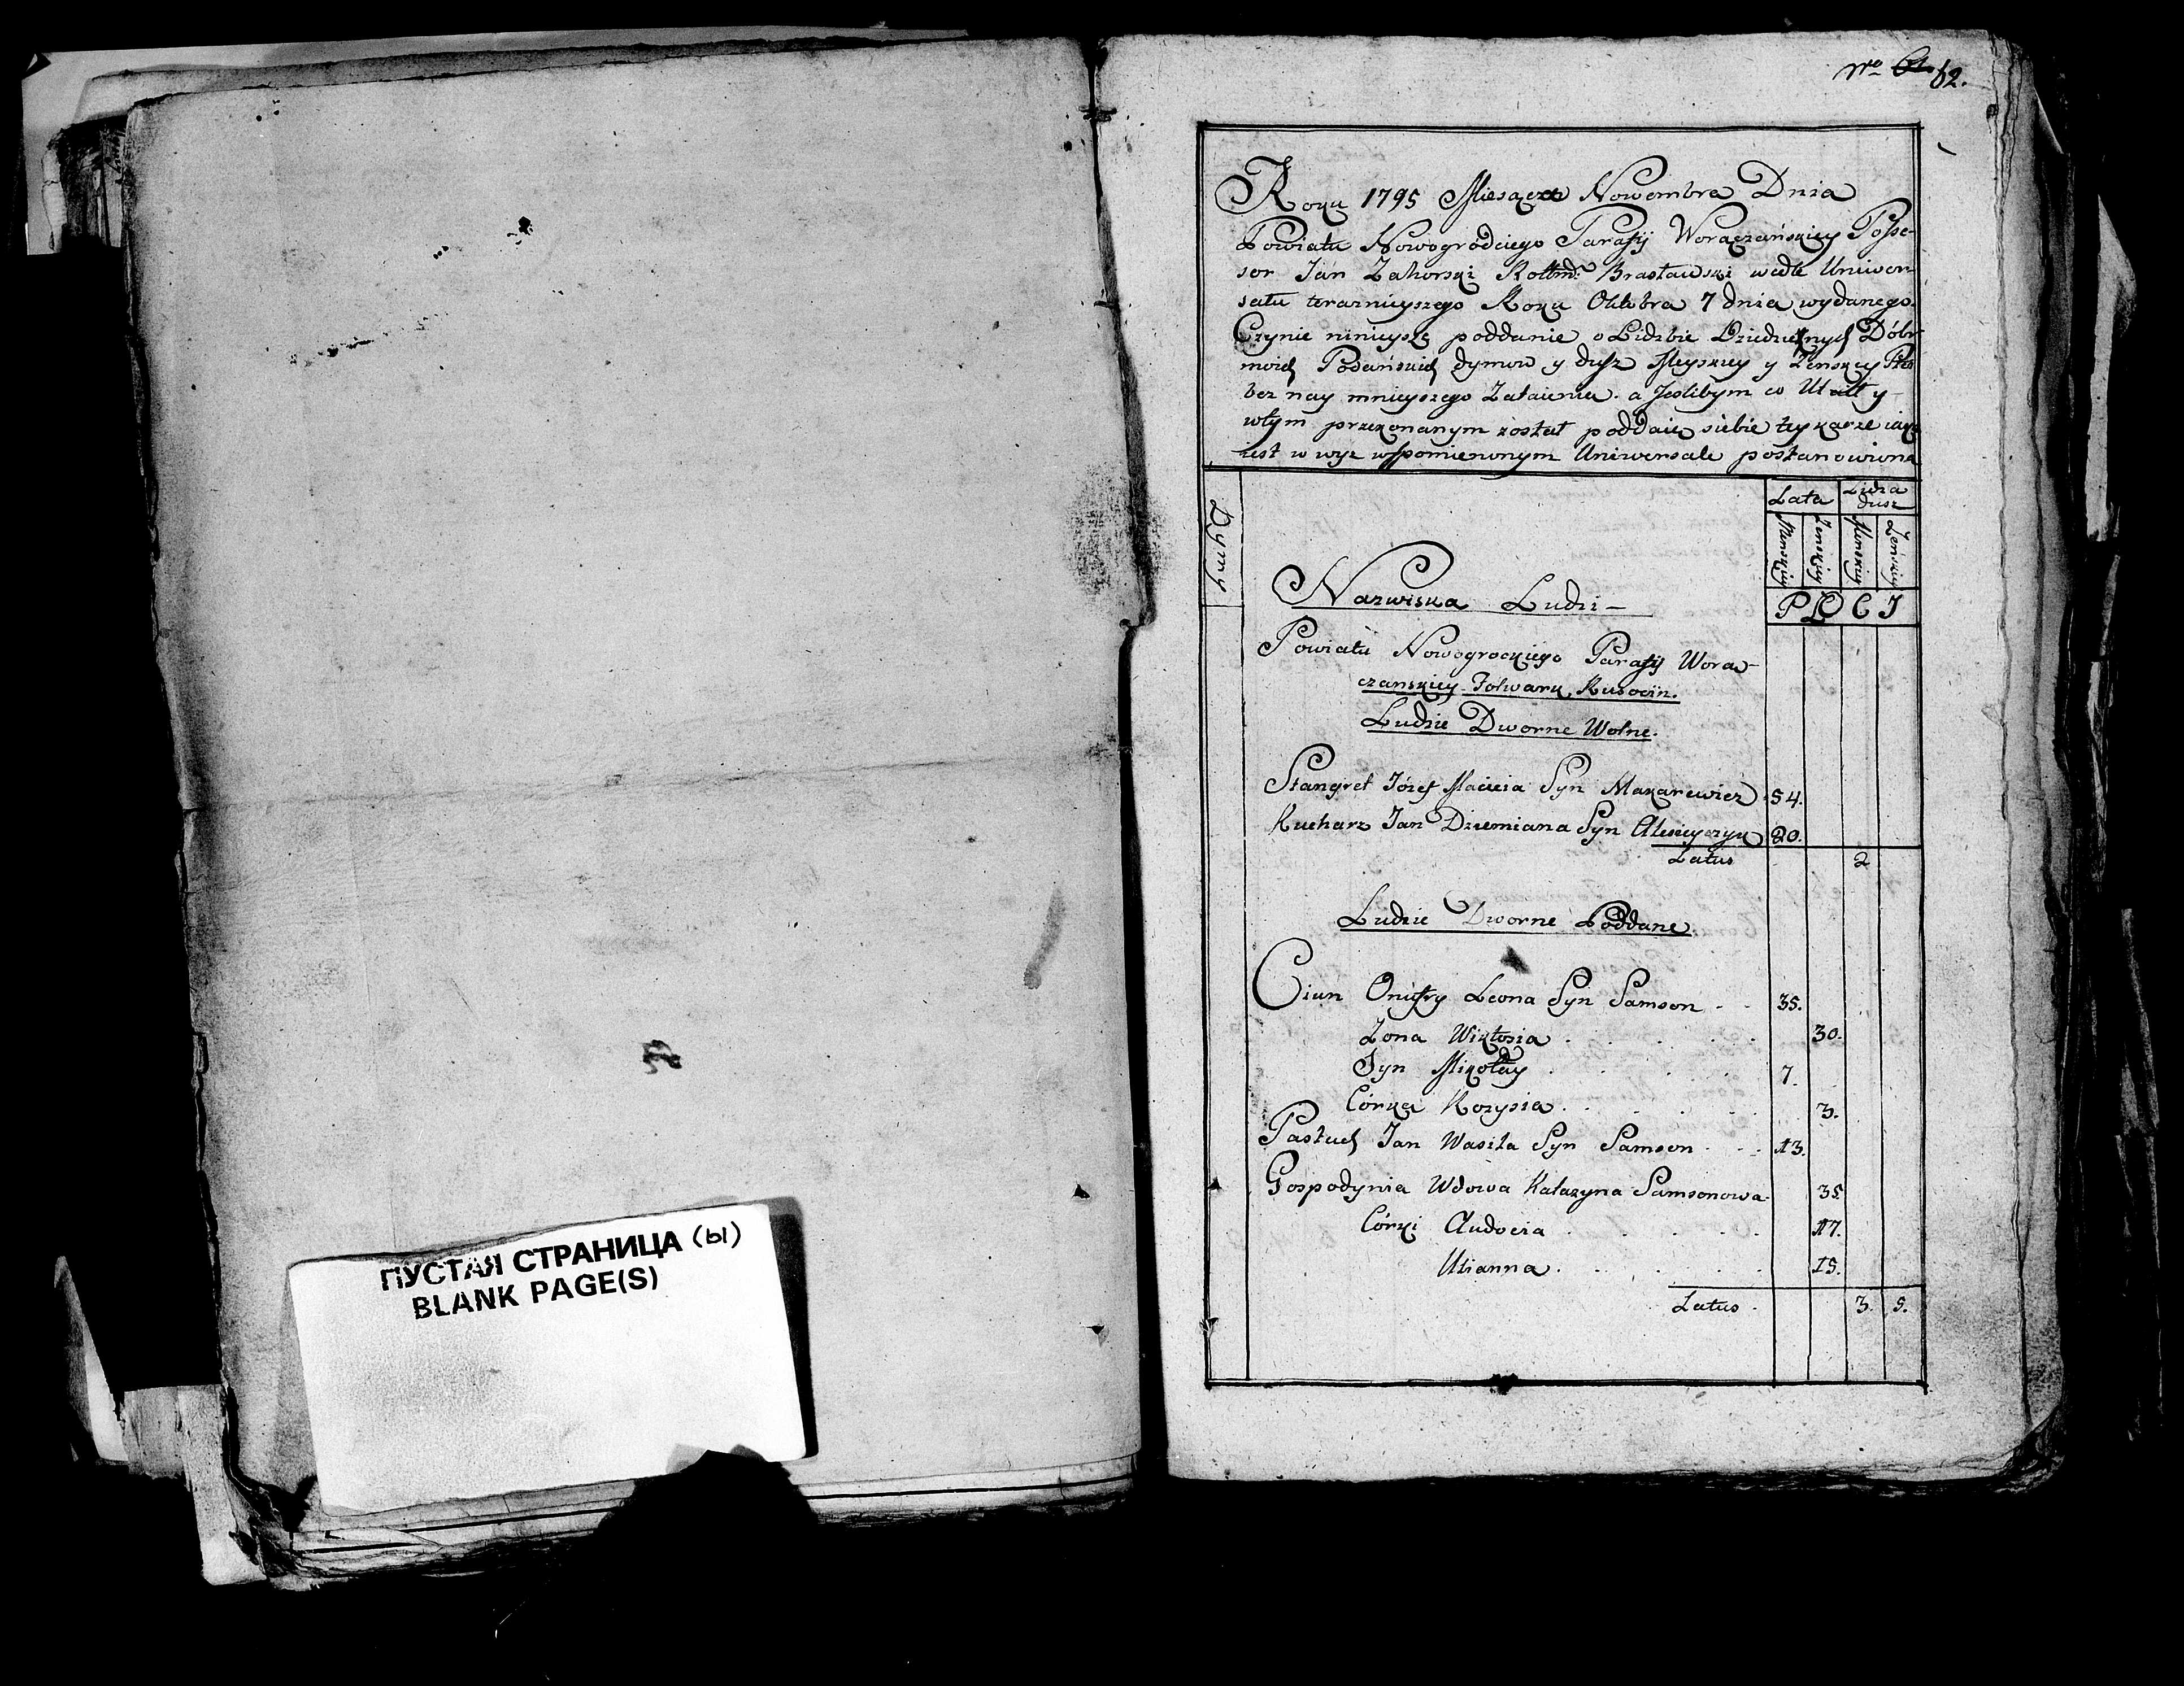 ПУСТАЯ СТРАНИЦА (ы)
BLANK PAGE(S)
No 62.
Roku 1795 Miesąca Nowembra Dnia
Powiatu Nowogrodciego Parafij Woraczańskiey Posse-
sor Jan Zahorski Rottm: Brasławski wedle Uniwer-
sału teraznieyszego Roku Oktobra 7 dnia wydanego.
Czynie ninieysze poddanie o Lidzbie Dziedzicznych Dóbr
moich Podańskich dymow y dusz Męyskiey y Żeńskiey Płci
bez nay mnieyszego Zataienia. a Jeslibym co Utaił y
wtym przekonanym został poddaie siebie tey karze iaka
iest w wyz wspomienonym Uniwersale postanowiona
Dymy
Lata
Lidzba dusz
Męnskiey
Żenskiey
Męnskiey
Żeńskiey
PŁCI
Nazwiska Ludzi -
Powiatu Nowogrockiego Parafij Wora-
czanskiey Folwark Rusocin.
Ludzie Dworne Wolne.
Stangret Józef Macieia Syn Makarewicz 54.
Kucharz Jan Dziemiana Syn Alexieyczyk 20.
Latus 2
Ludzie Dworne Poddane
Ciun Onufry Leona Syn Samson - - 35.
Zona Wiktosia . . . . . 30.
Syn Mikołay . . . . . 7.
Córka Rozysia . . . . . 3.
Pastuch Jan Wasila Syn Samson . . . 13.
Gospodynia Wdowa Katazyna Samsonowa - 35.
Córki Audocia . . . . . 17.
Ulianna . . . . . 15.
Latus . 3. 5.